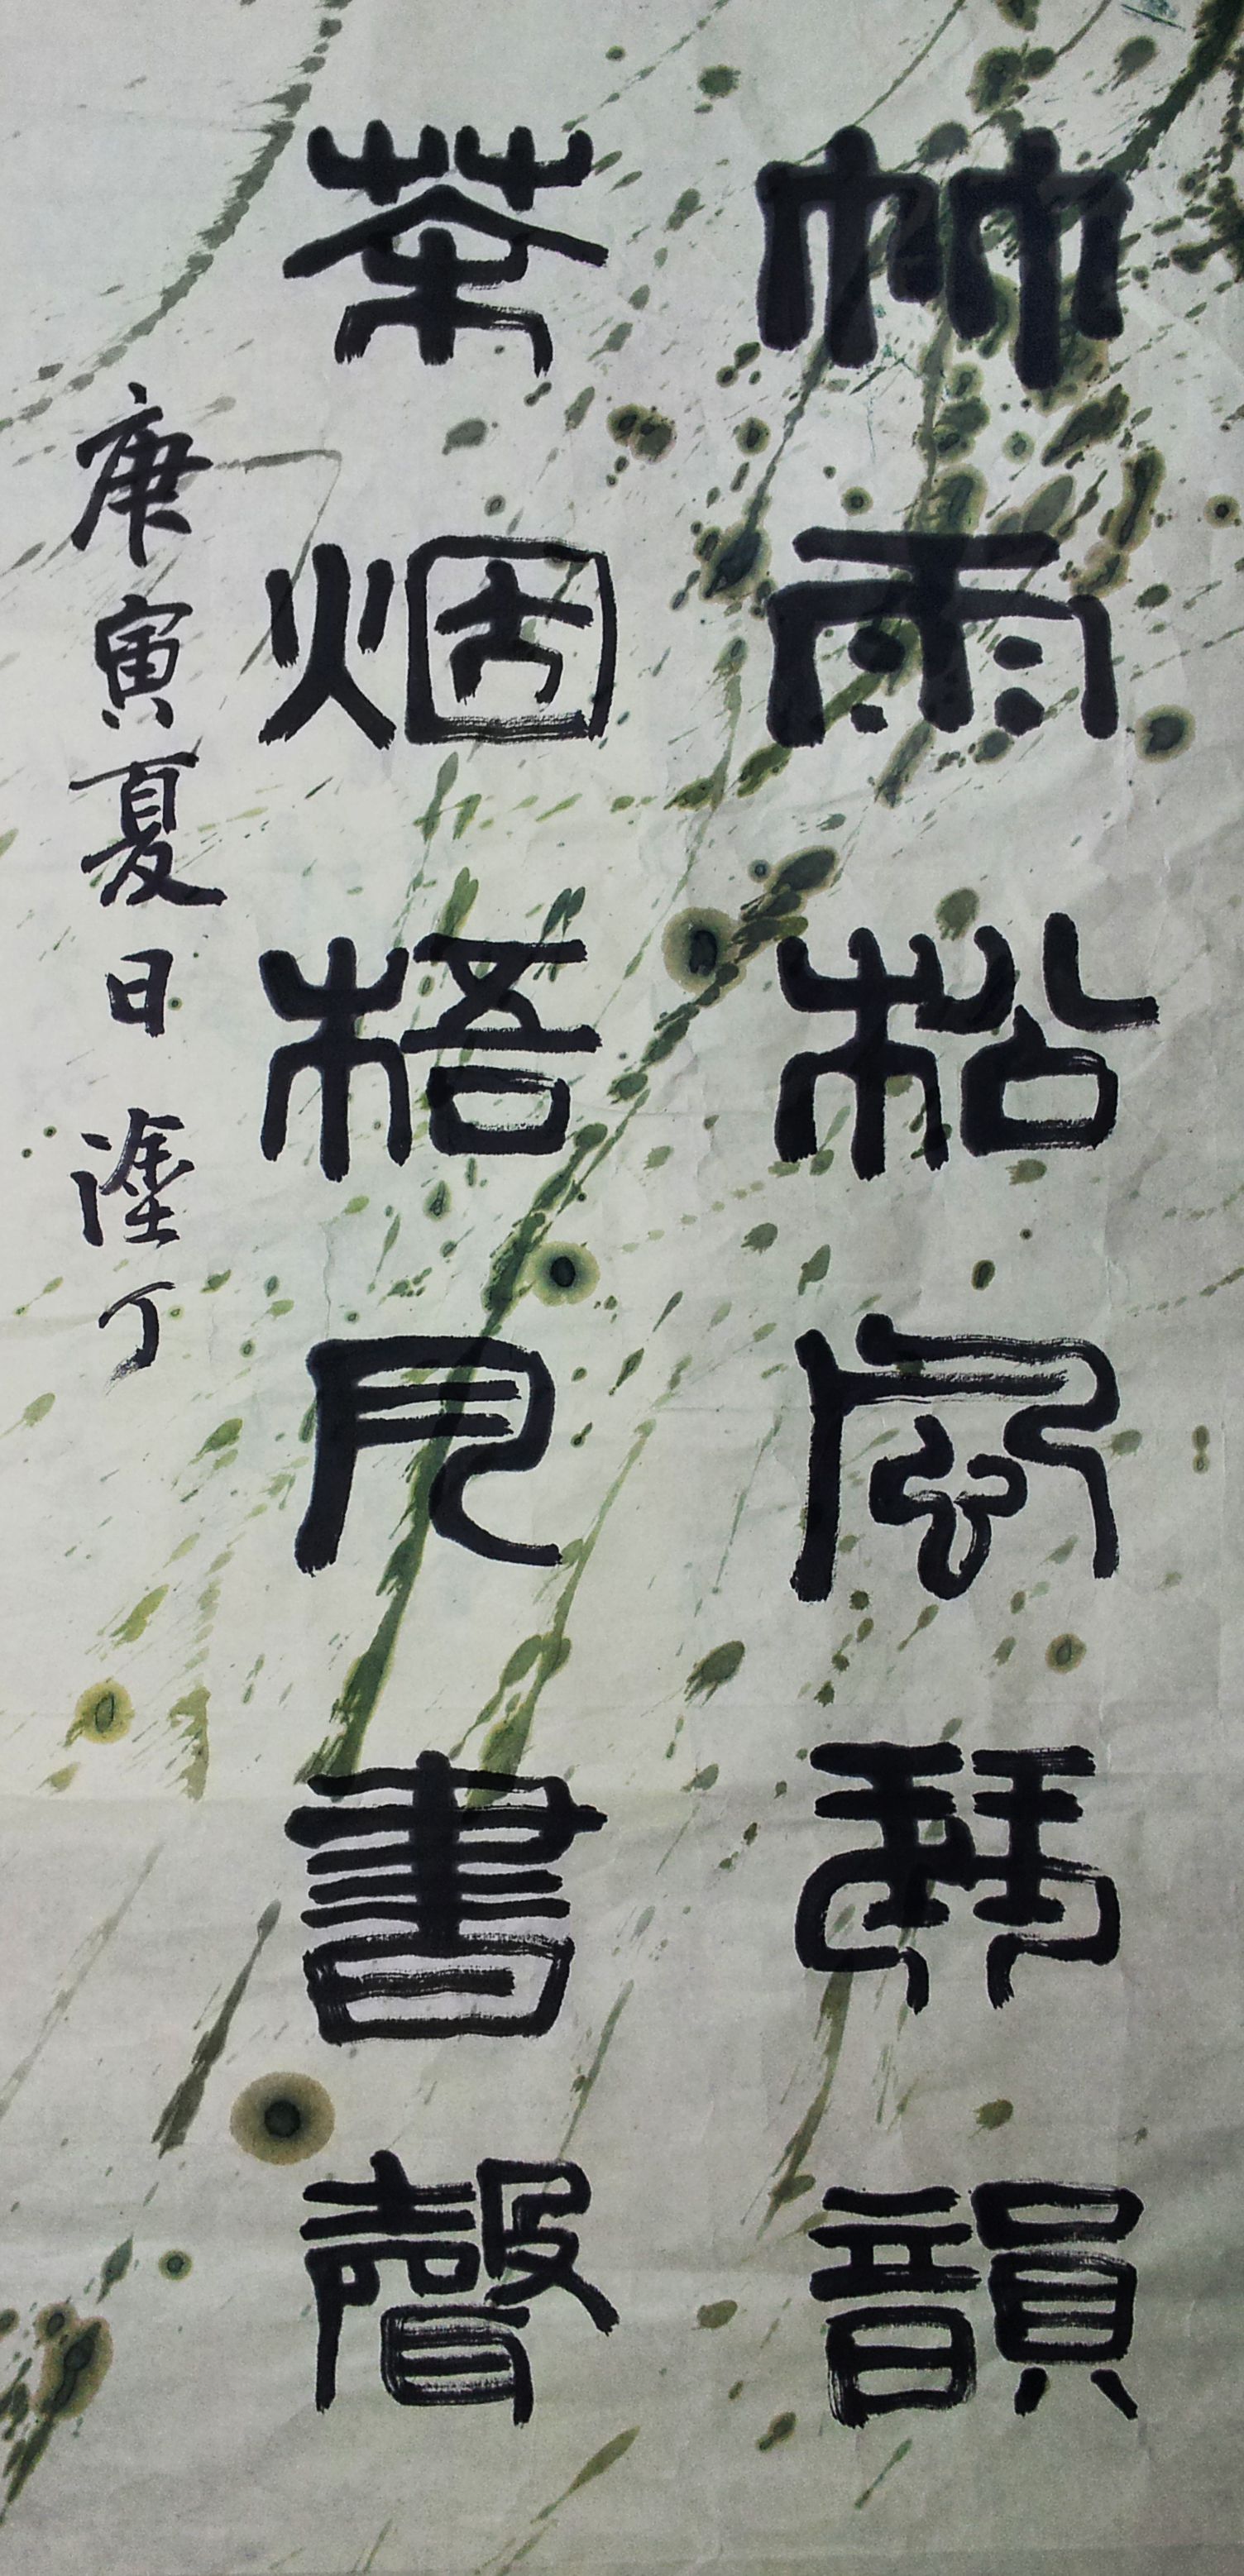 竹雨松風琴韻
茶烟梧月書聲
庚寅夏日 塗丁